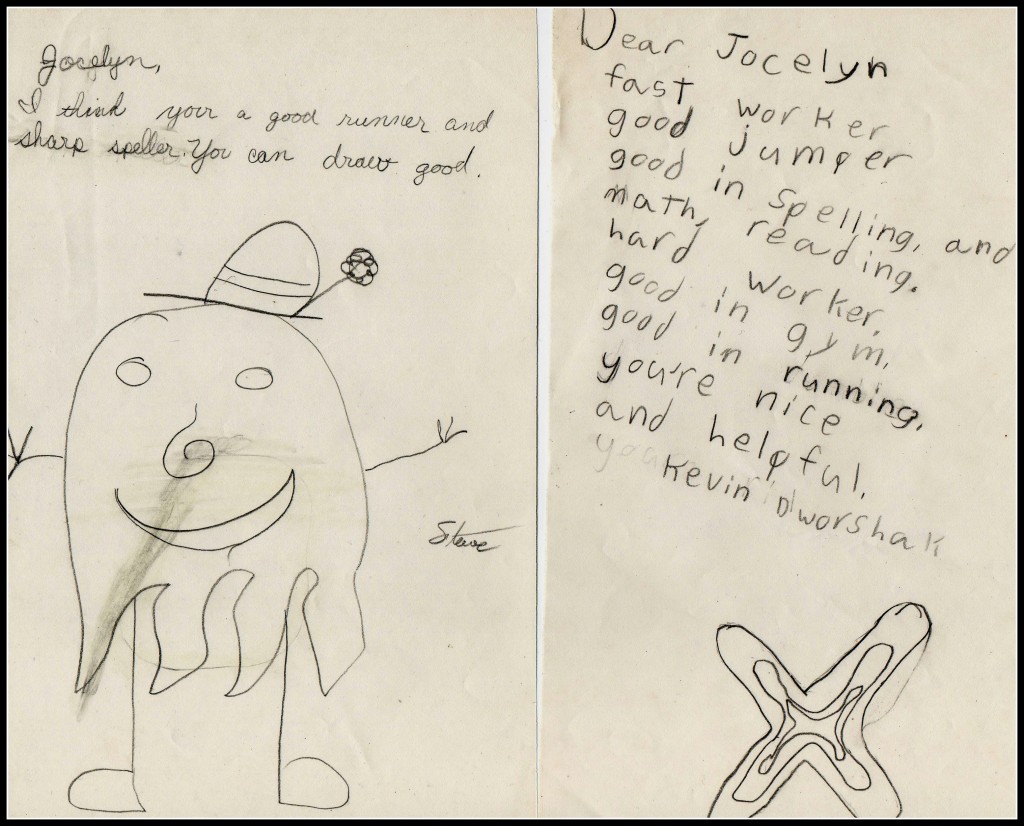 Jocelyn,
I think your a good runner and
sharp speller. You can draw good.
Steve
Dear Jocelyn
fast worker
good jumper
good in spelling, and
math, reading.
hard worker.
good in gym.
good in running.
you're nice
and helpful.
Kevin Dworshak